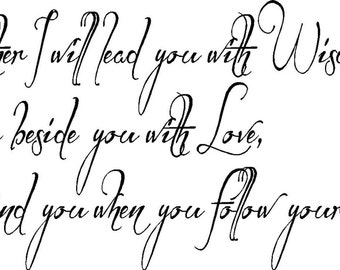 her I will lead you with Wis
beside you with Love,
nd you when you follow your